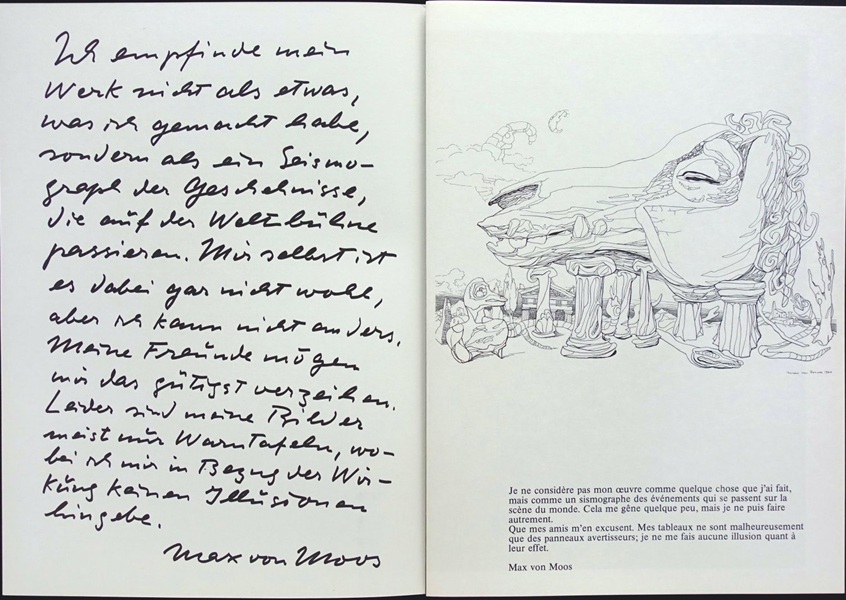 Ich empfinde mein
Werk nicht als etwas,
was ich gemacht habe,
sondern als ein Seismo-
graph der Geschehnisse,
die auf der Weltbühne
passieren. Mir selbst ist
es dabei gar nicht wohl,
aber ich kann nicht anders.
Meine Freunde mögen
mir das gütigst verzeihen.
Leider sind meine Bilder
meist nur Warntafeln, wo-
bei ich mir in Bezug der Wir-
kung keinen Illusionen
hingebe.
Max von Moos
Je ne considère pas mon œuvre comme quelque chose que j'ai fait,
mais comme un sismographe des événements qui se passent sur la
scène du monde. Cela me gêne quelque peu, mais je ne puis faire
autrement.
Que mes amis m'en excusent. Mes tableaux ne sont malheureusement
que des panneaux avertisseurs; je ne me fais aucune illusion quant à
leur effet.
Max von Moos